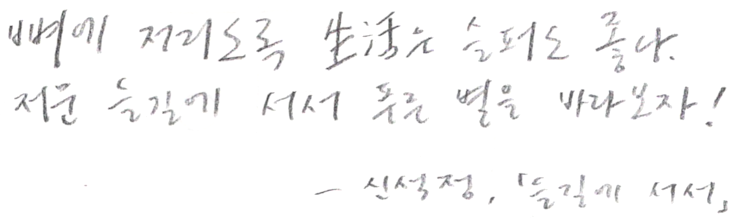 뼈에 저리도록 生活은 슬퍼도 좋다.
저문 들길에 서서 푸른 별을 바라보자!
- 신석정, 「들길에 서서」